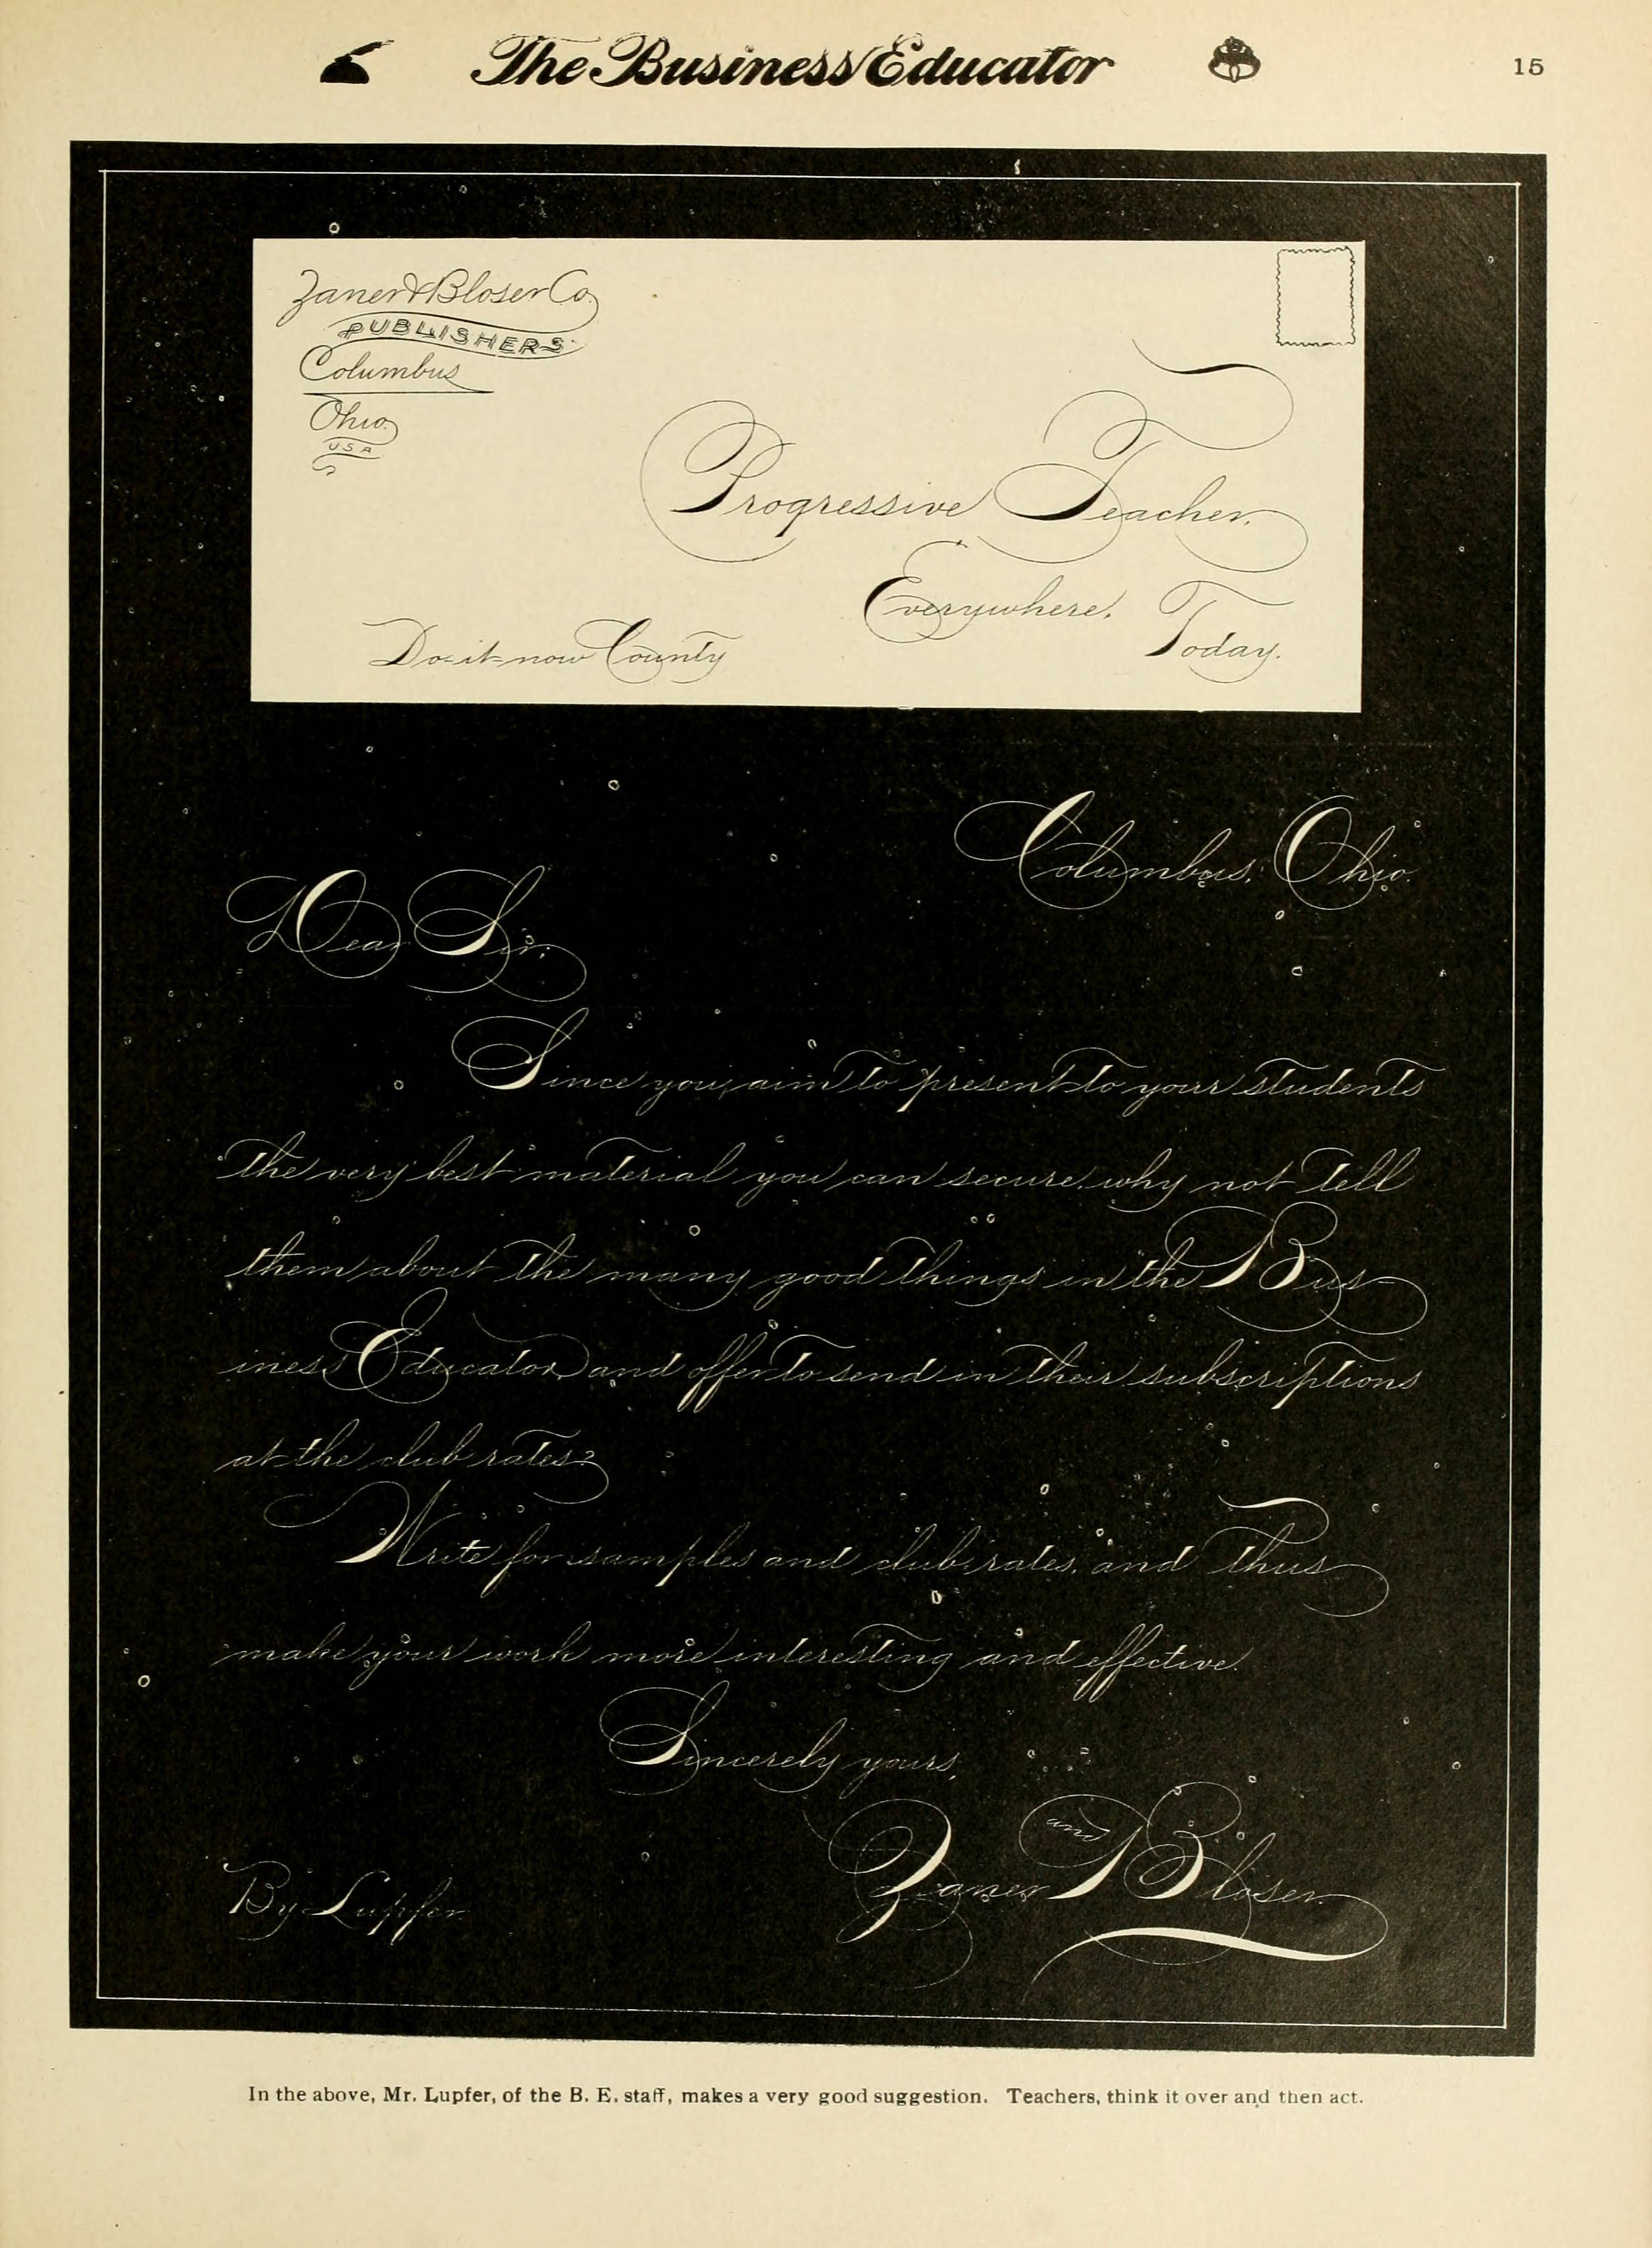 The Business Educator
15
Zaner & Bloser Co.
PUBLISHERS
Columbus
Ohio.
USA
Progressive Teacher,
Everywhere,
Today.
Do-it-now County
Columbus, Ohio.
Dear Sir:
Since you aim to present to your students
the very best material you can secure, why not tell
them about the many good things in the Bus-
iness Educator and offer to send in their subscriptions
at the club rates?
Write for samples and club rates, and thus
make your work more interesting and effective.
Sincerely yours,
Zaner and Bloser.
By Lupfer
In the above, Mr. Lupfer, of the B. E. staff, makes a very good suggestion. Teachers, think it over and then act.